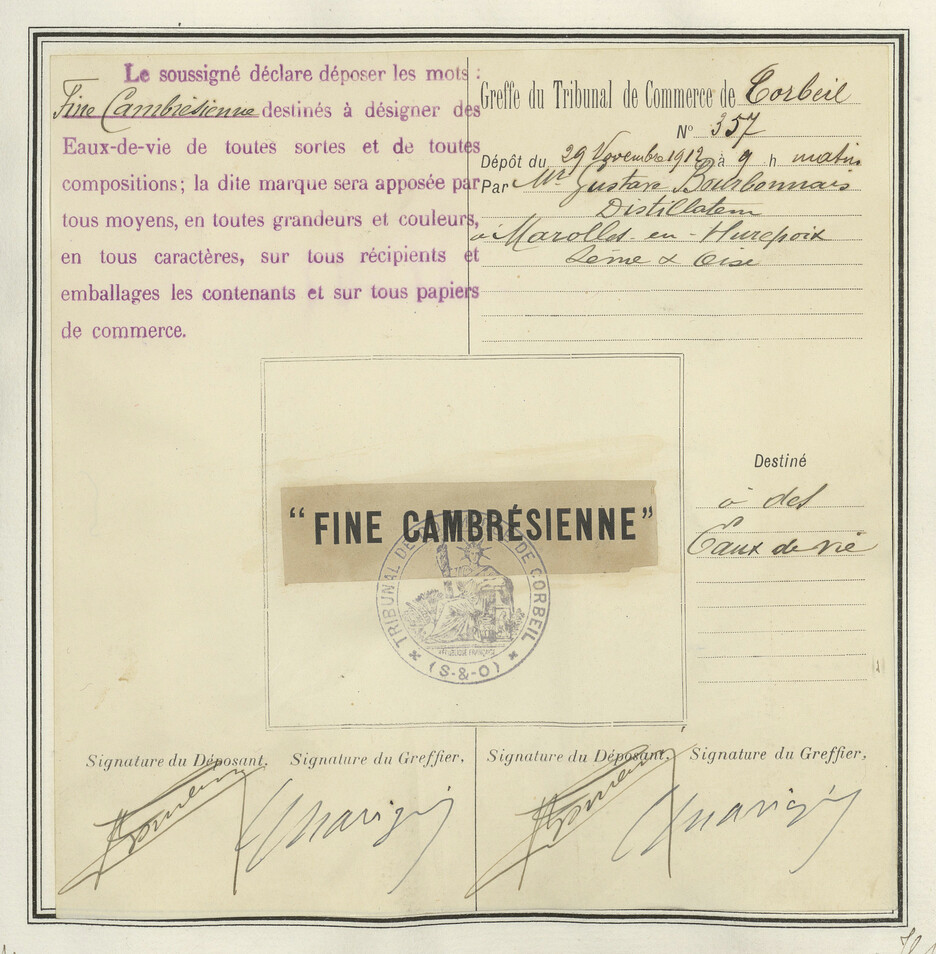 Le soussigné déclare déposer les mots :
Fine Cambrésienne destinés à désigner des
Eaux-de-vie de toutes sortes et de toutes
compositions; la dite marque sera apposée par
tous moyens, en toutes grandeurs et couleurs,
en tous caractères, sur tous récipients et
emballages les contenants et sur tous papiers
de commerce.
Greffe du Tribunal de Commerce de Corbeil
N° 357
Dépôt du 29 Novembre 1912 à 9 h matin
Par Mr Gustave Bourbonnais
Distillateur
à Marolles-en-Hurepoix
Seine & Oise
"FINE CAMBRÉSIENNE"
TRIBUNAL DE COMMERCE DE CORBEIL
RÉPUBLIQUE FRANÇAISE
(S-&-O)
Destiné
à des
Eaux de vie
Signature du Déposant, Signature du Greffier,
Signature du Déposant, Signature du Greffier,